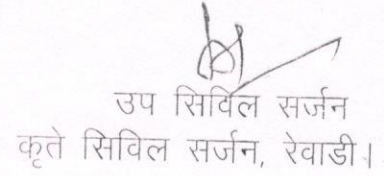 उप सिविल सर्जन
कृते सिविल सर्जन, रेवाडी।